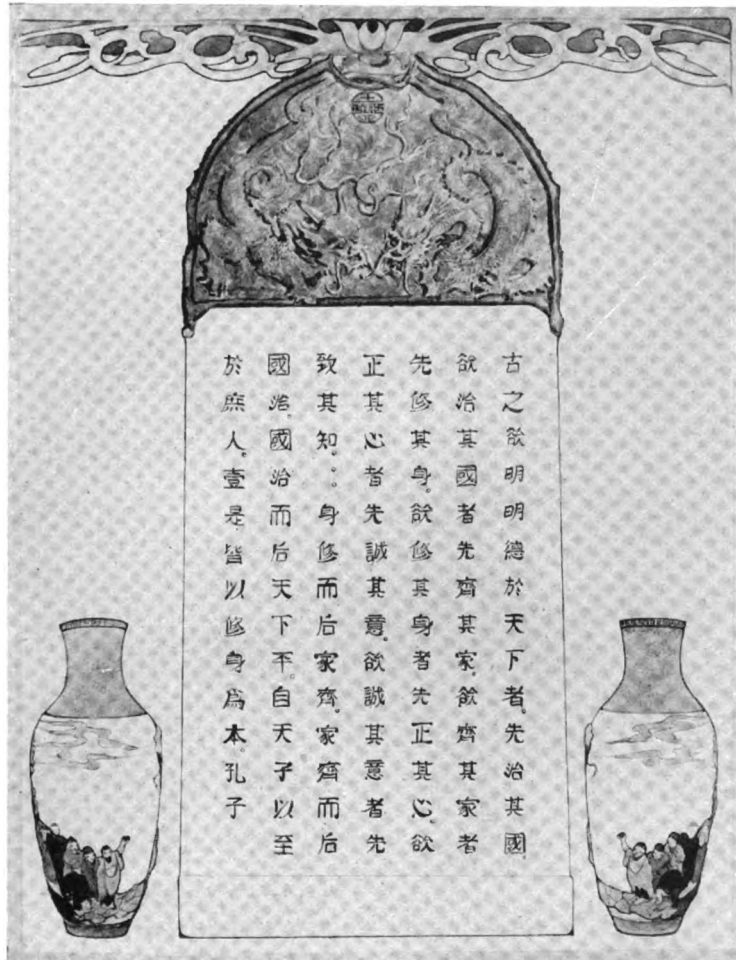 古之欲明明德於天下者。先治其國。
欲治其國者先齊其家。欲齊其家者
先修其身。欲修其身者先正其心。欲
正其心者先誠其意。欲誠其意者先
致其知。。。身修而后家齊。家齊而后
國治。國治而后天下平。自天子以至
於庶人。壹是皆以修身爲本。孔子